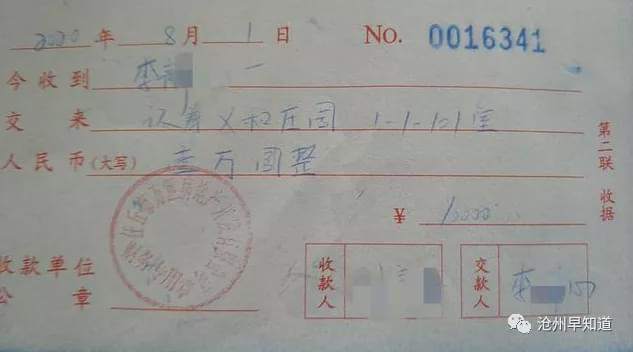 2020 年 8 月 1 日 NO. 0016341
今收到 李
交来 认筹义和庄园 1-1-121室
人民币(大写) 壹万圆整
¥ 10000
第二联 收据
收款单位
公章
收款人
交款人 李
沧州早知道